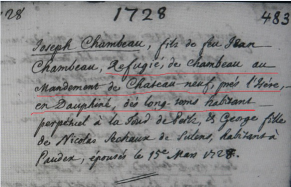 28 1728 483
Joseph Chambeau, fils de feu Jean
Chambeau, Refugié, de Chambeau au
Mandement de Chateau-neuf, près l'Isère,
en Dauphiné, dès long tems habitant
perpétuel à la de & George fille
de Nicolas de habitant à
Pudex, épousés le 15e Mars 1728.